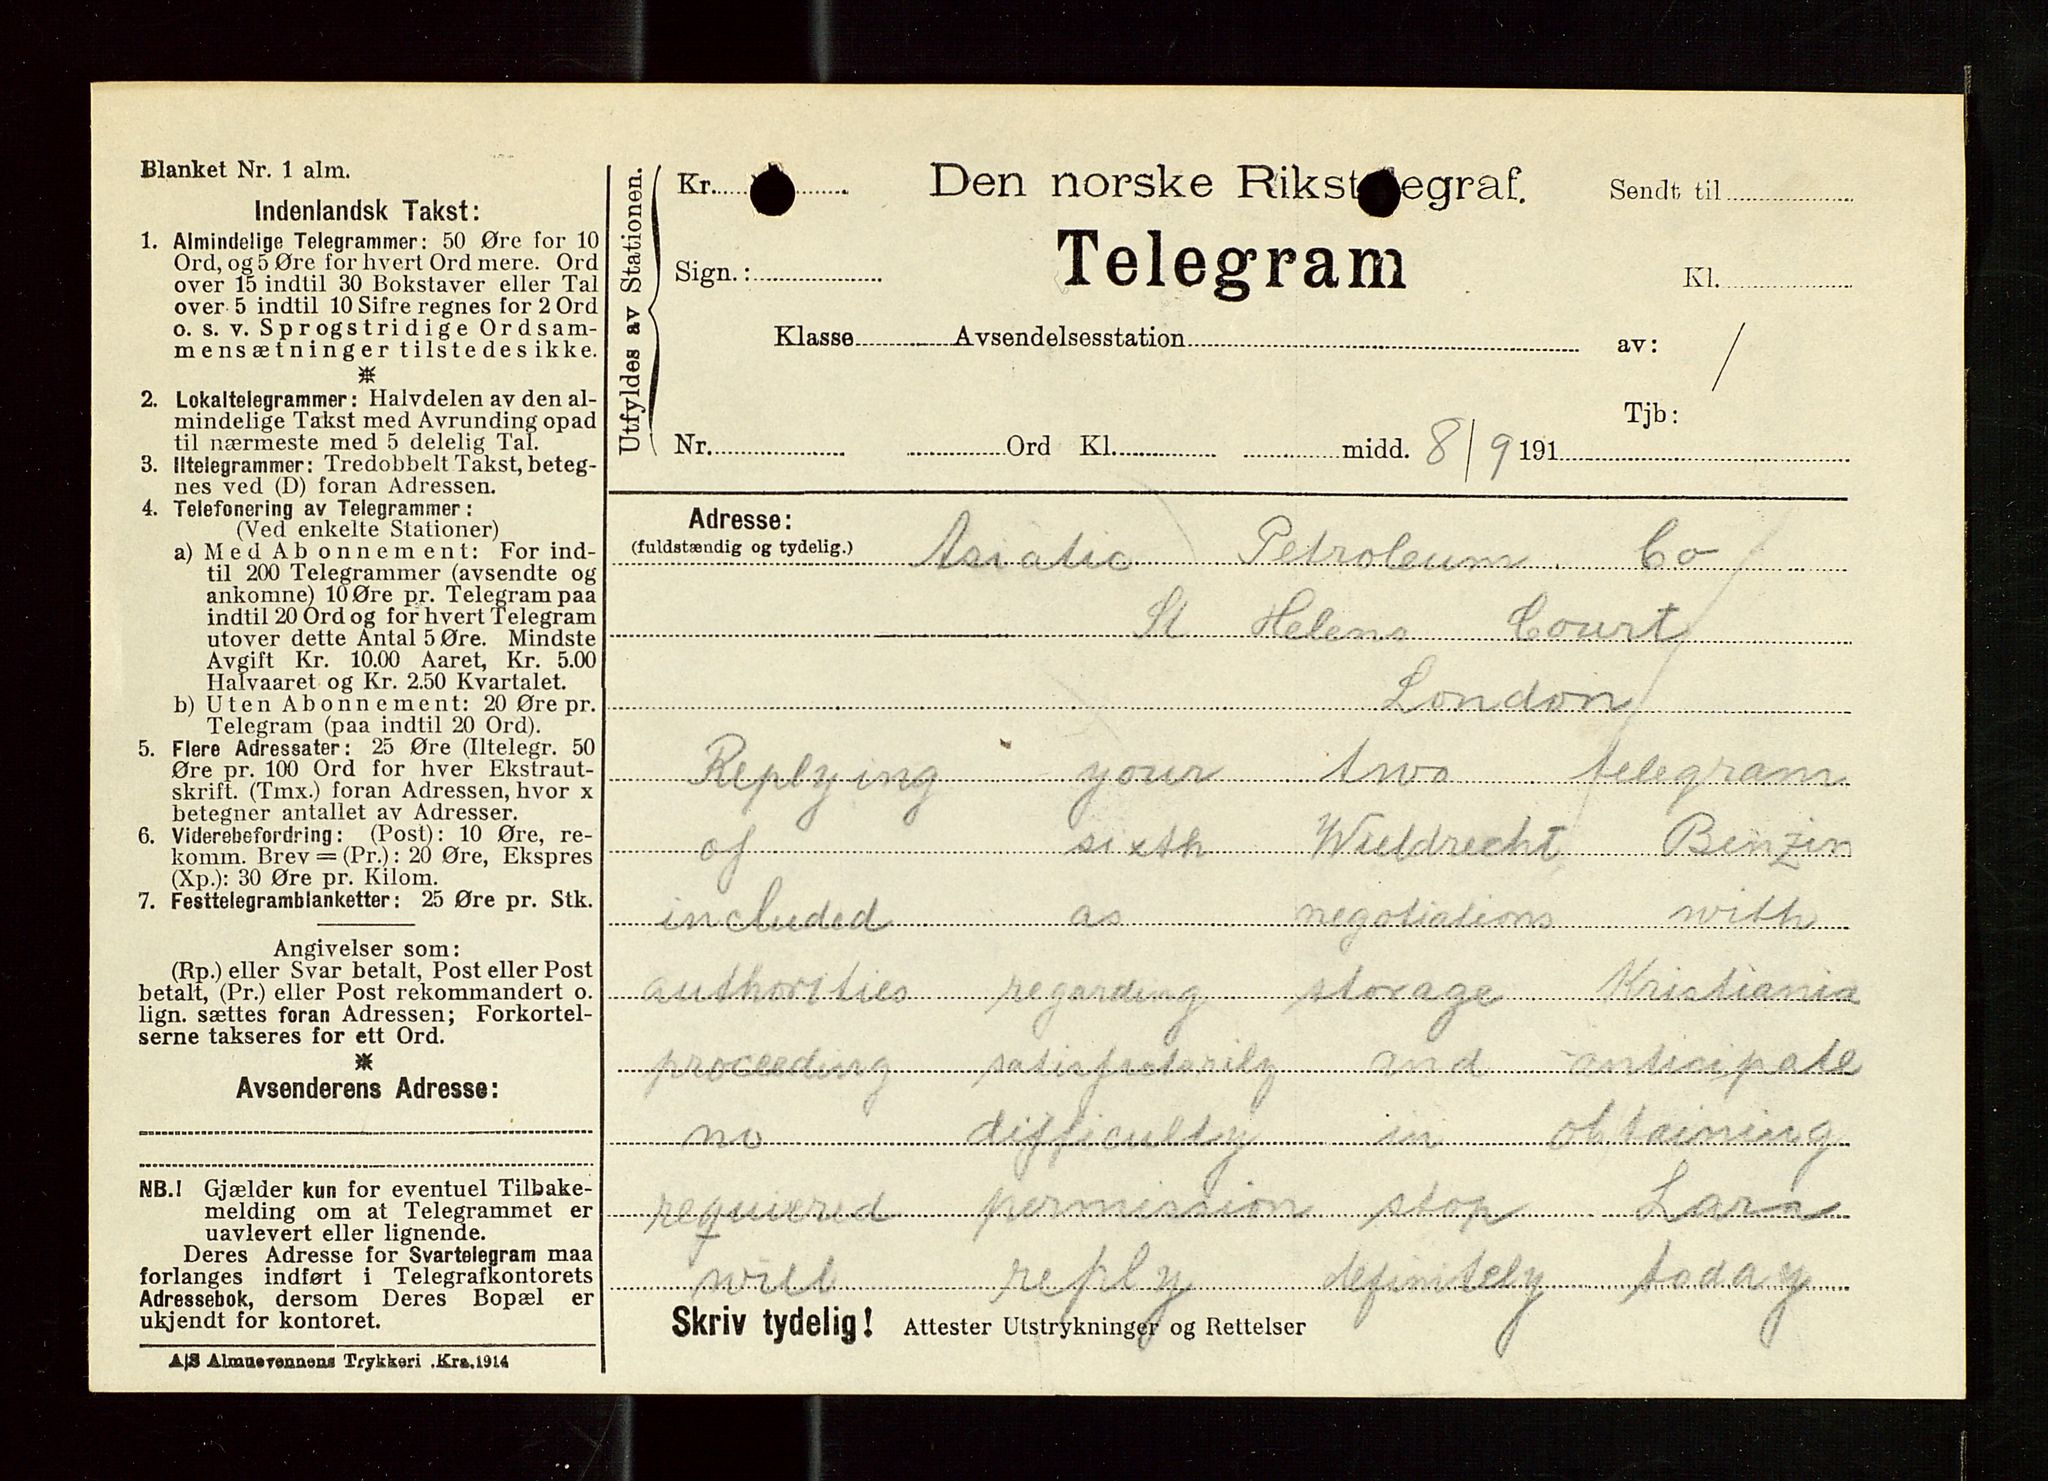 Blanket Nr. 1 alm.
Indenlandsk Takst:
1. Almindelige Telegrammer: 50 Øre for 10
Ord, og 5 Øre for hvert Ord mere. Ord
over 15 indtil 30 Bokstaver eller Tal
over 5 indtil 10 Sifre regnes for 2 Ord
o. s. v. Sprogstridige Ordsam-
mensætninger tilstedes ikke.
2. Lokaltelegrammer: Halvdelen av den al-
mindelige Takst med Avrunding opad
til nærmeste med 5 delelig Tal.
3. Iltelegrammer: Tredobbelt Takst, beteg-
nes ved (D) foran Adressen.
4. Telefonering av Telegrammer:
(Ved enkelte Stationer)
a) Med Abonnement: For ind-
til 200 Telegrammer (avsendte og
ankomne) 10 Øre pr. Telegram paa
indtil 20 Ord og for hvert Telegram
utover dette Antal 5 Øre. Mindste
Avgift Kr. 10.00 Aaret, Kr. 5.00
Halvaaret og Kr. 2.50 Kvartalet.
b) Uten Abonnement: 20 Øre pr.
Telegram (paa indtil 20 Ord).
5. Flere Adressater: 25 Øre (Iltelegr. 50
Øre pr. 100 Ord for hver Ekstraut-
skrift. (Tmx.) foran Adressen, hvor x
betegner antallet av Adresser.
6. Viderebefordring: (Post): 10 Øre, re-
komm. Brev = (Pr.): 20 Øre, Ekspres
(Xp.): 30 Øre pr. Kilom.
7. Festtelegramblanketter: 25 Øre pr. Stk.
Angivelser som:
(Rp.) eller Svar betalt, Post eller Post
betalt, (Pr.) eller Post rekommandert o.
lign. sættes foran Adressen; Forkortel-
serne takseres for ett Ord.
Avsenderens Adresse:
NB.! Gjælder kun for eventuel Tilbake-
melding om at Telegrammet er
uavlevert eller lignende.
Deres Adresse for Svartelegram maa
forlanges indført i Telegrafkontorets
Adressebok, dersom Deres Bopæl er
ukjendt for kontoret.
A/S Almuevennens Trykkeri .Kra.1914
Utfyldes av Stationen.
Kr. Den norske Rikstelegraf. Sendt til
Sign.: Telegram Kl.
Klasse Avsendelsesstation av: /
Tjb:
Nr. Ord Kl. midd. 8/9 191
Adresse:
(fuldstændig og tydelig.)
Asiatic Petroleum Co
St Helens Court
London
Replying your two telegram
of sixth Wieldrecht Benzin
included as negotiations with
authorities regarding storage Kristiania
proceeding satisfactorily and anticipate
no difficulty in obtaining
requiered permission stop Lara
will reply definitely today
Skriv tydelig! Attester Utstrykninger og Rettelser